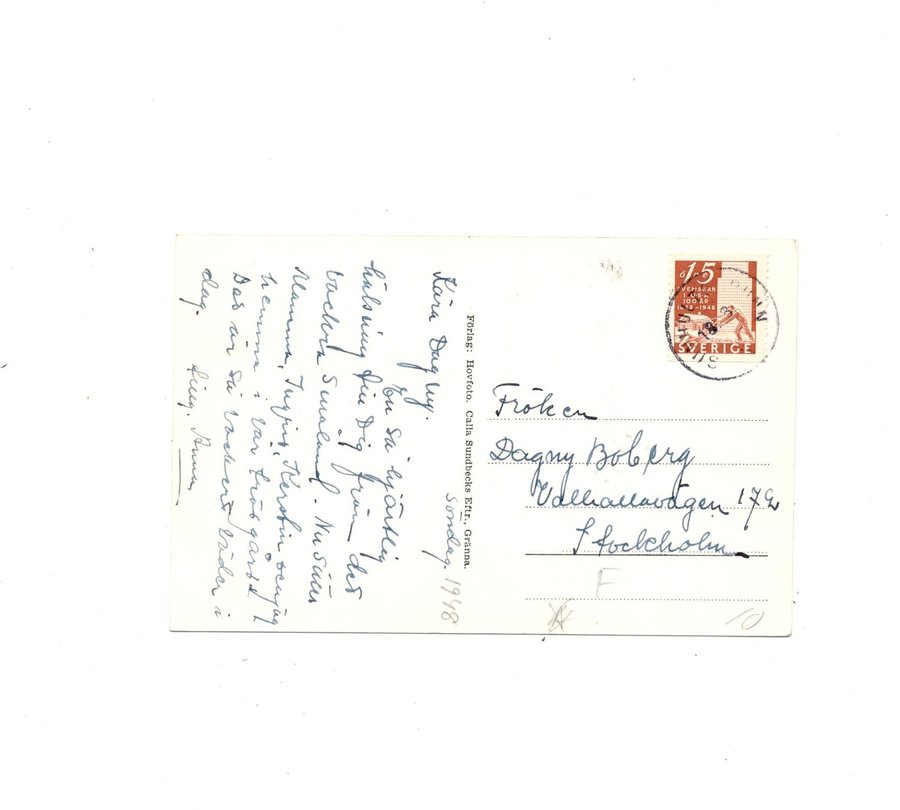 Söndag. 1948
Kära Dagny.
En så hjärtlig
hälsning till Dig från det
vackra Småland. Nu sitter
Mamma, Ingrid, Kerstin och jag
hemma i vår trädgård.
Det är så vackert väder i
dag.
Anna
Förlag: Hovfoto. Calla Sundbecks Eftr., Gränna.
15
SVENSKAR
I U.S.A.
100 ÅR
1848-1948
SVERIGE
Fröken
Dagny Boberg
Valhallavägen 179
Stockholm
F
10